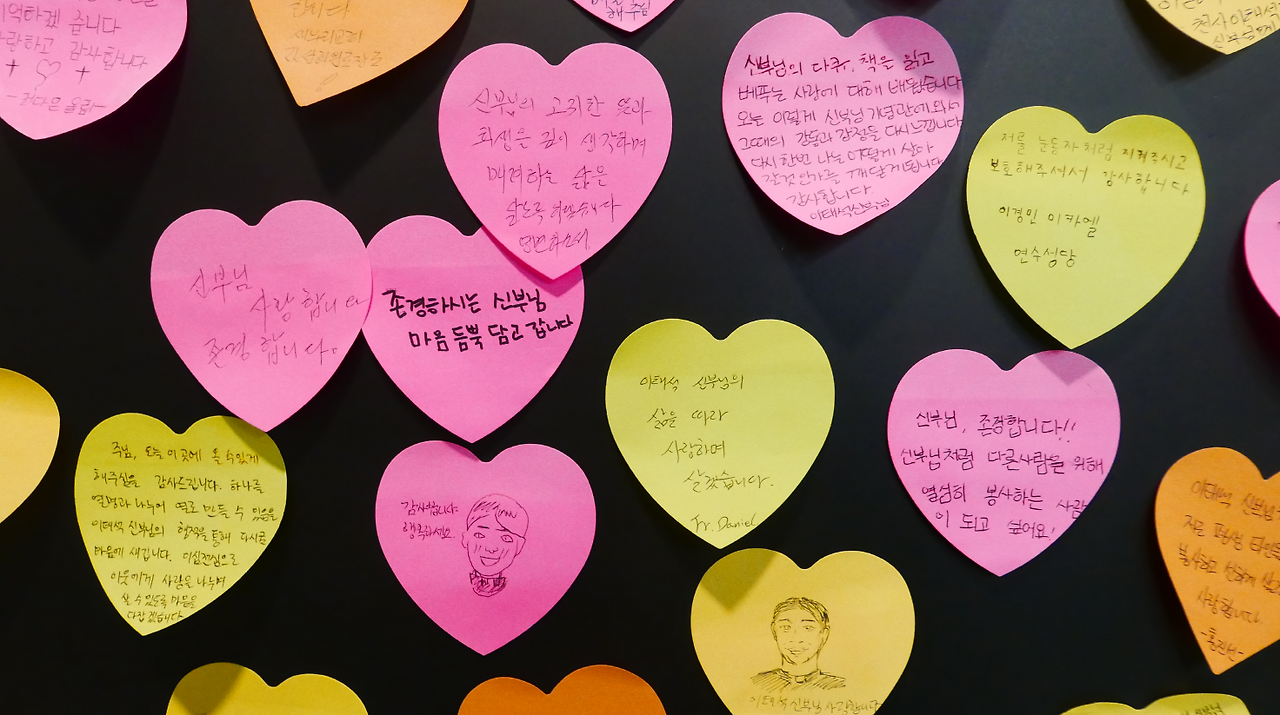 억하겠 줍니다
사랑하고 감사합니다
해 주심
천사 이태석
신부님께
신부님의 고귀한 뜻과
희생을 깊이 생각하며
배려하는 삶은
살도록 하겠습니다
신부님의 다큐, 책을 읽고
베푸는 사랑에 대해 배웠습니다
오늘 이렇게 신부님 기념관에 와서
그때의 감동과 감정을 다시 느낍니다
다시 한번 나는 어떻게 살아
갈 것인가를 깨닫게 됩니다
감사합니다
이태석신부님
저를 눈동자처럼 지켜주시고
보호해주셔서 감사합니다
이경민 미카엘
연수성당
신부님
사랑합니다
존경합니다.
존경하시는 신부님
마음 듬뿍 담고 갑니다
이태석 신부님의
삶을 따라
사랑하며
살겠습니다.
Fr. Daniel
신부님, 존경합니다!!
신부님처럼 다른사람을 위해
열심히 봉사하는 사람
이 되고 싶어요!
주님, 오늘 이 곳에 올 수 있게
해주심을 감사드립니다. 하나를
열명과 나누어 열로 만들 수 있음을
이태석 신부님의 행적을 통해 다시금
마음에 새깁니다. 이심전심으로
이웃에게 사랑을 나누며
살 수 있도록 마음을
다잡겠습니다
감사합니다.
행복하세요.
이태석 신부님
저도 평생
봉사하고 선하게
사랑합니다
이태석 신부님 사랑합니다